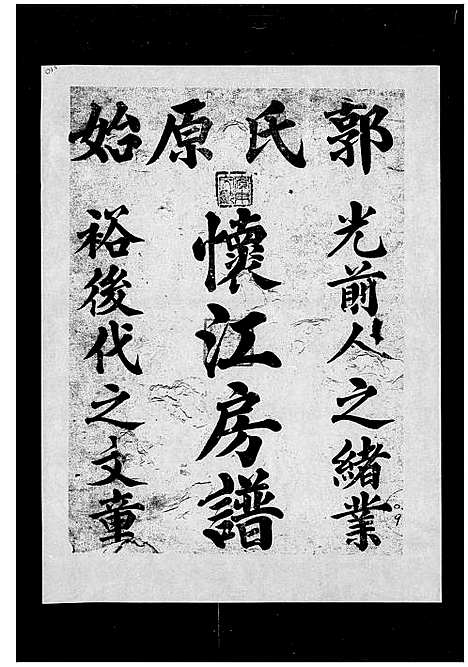 郭氏原始
光前人之緒業
懷江房譜
裕後代之文童